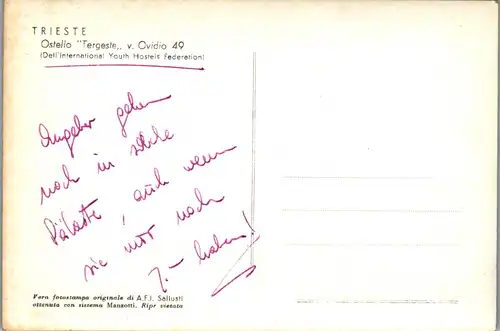 TRIESTE
Ostello "Tergeste,, v. Ovidio 49
(Dell'International Youth Hostels Federation)
Angeber gehen
noch in solche
Paläste, auch wenn
sie nur noch
7.- haben!
Vera fotostampa originale di A.F.I. Sellusti
ottenuta con sistema Manzotti. Ripr vietata